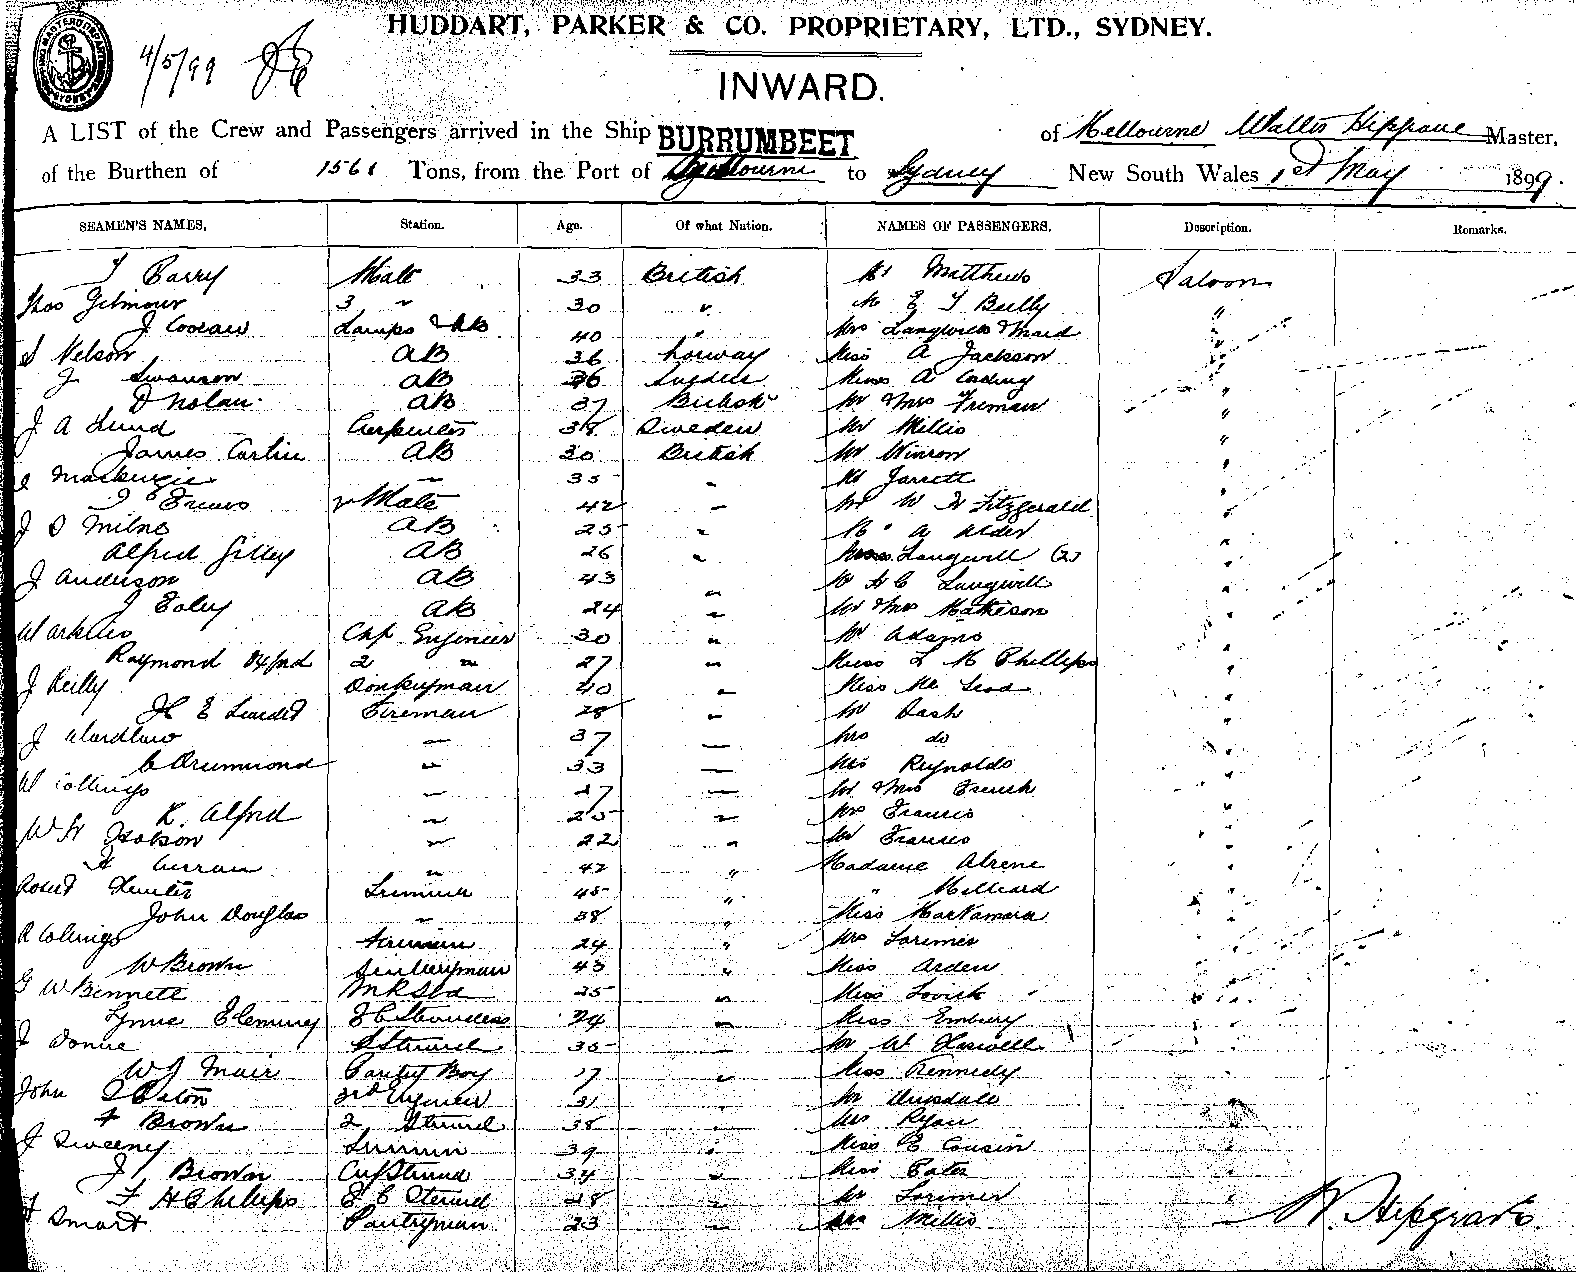 HUDDART, PARKER & CO. PROPRIETARY, LTD., SYDNEY.
4/5/99
INWARD.
A LIST of the Crew and Passengers arrived in the Ship BURRUMBEET of Melbourne Walter Hipgrave Master,
of the Burthen of 1561 Tons, from the Port of Melbourne to Sydney New South Wales 1st May 1899.
SEAMEN'S NAMES. Station. Age. Of what Nation. NAMES OF PASSENGERS. Description. Remarks.
Barry Mate 33 British Mr Matthews Saloon
Thos Gilmour 3 " 30 " Mr E T Beilly "
J Lamps & AB 40 " Mrs Langwill & Maid "
S Nelson AB 36 Norway Miss A Jackson "
J Swanson AB 36 Sweden Miss A "
D Nolan AB 37 British Mr & Mrs Freman "
J A Lund Carpenter 38 Sweden Mr Millis "
James Carlin AB 30 British Mr Winrow "
Mackenzie " 35 " Mr Jarrett "
2 Mate 42 " Mr W H Fitzgerald "
J S Milne AB 25 " A Alder "
Alfred Gilley AB 26 " Misses Langwill (2) "
J Anderson AB 43 " Mr H C Langwill "
J Foley AB 24 " Mr & Mrs Matheson "
W Chf Engineer 30 " Mr Adams "
Raymond 2 " 27 " Miss L M Phillips "
J Reilly Donkeyman 40 " Miss Mc Leod "
Fireman 28 " Mr Dash "
J Wardlaw " 37 " Mrs do "
C Drummond " 33 " Mrs Reynolds "
W Collings " 27 " Mr & Mrs French "
R. Alford " 25 " Mrs Francis "
W H Hobson " 22 " Mr Francis "
H Curran " 42 " Madame "
Robert Hunter Trimmer 45 " " "
John Douglas " 38 " Miss MacNamara "
R Collings Fireman 24 " Mrs Lorimer "
W Brown 43 " Miss Arden "
G W Bennett 25 " Miss Lovick "
Fleming F C Stewardess 34 " Miss Embury "
J Steward 35 " Mr W Haswell "
W J Muir Pantry Boy 17 " Miss Kennedy "
John Eaton 3rd Engineer 31 " Mr "
F Brown 2 Steward 38 " Mrs Ryan "
J Sweeney Trimmer 39 " Miss E Cousin "
J Brown Steward 34 " Miss "
F H Phillips F C Steward 28 " Mr Lorimer "
Smart Pantryman 23 " Mrs Millis "
W. Hipgrave